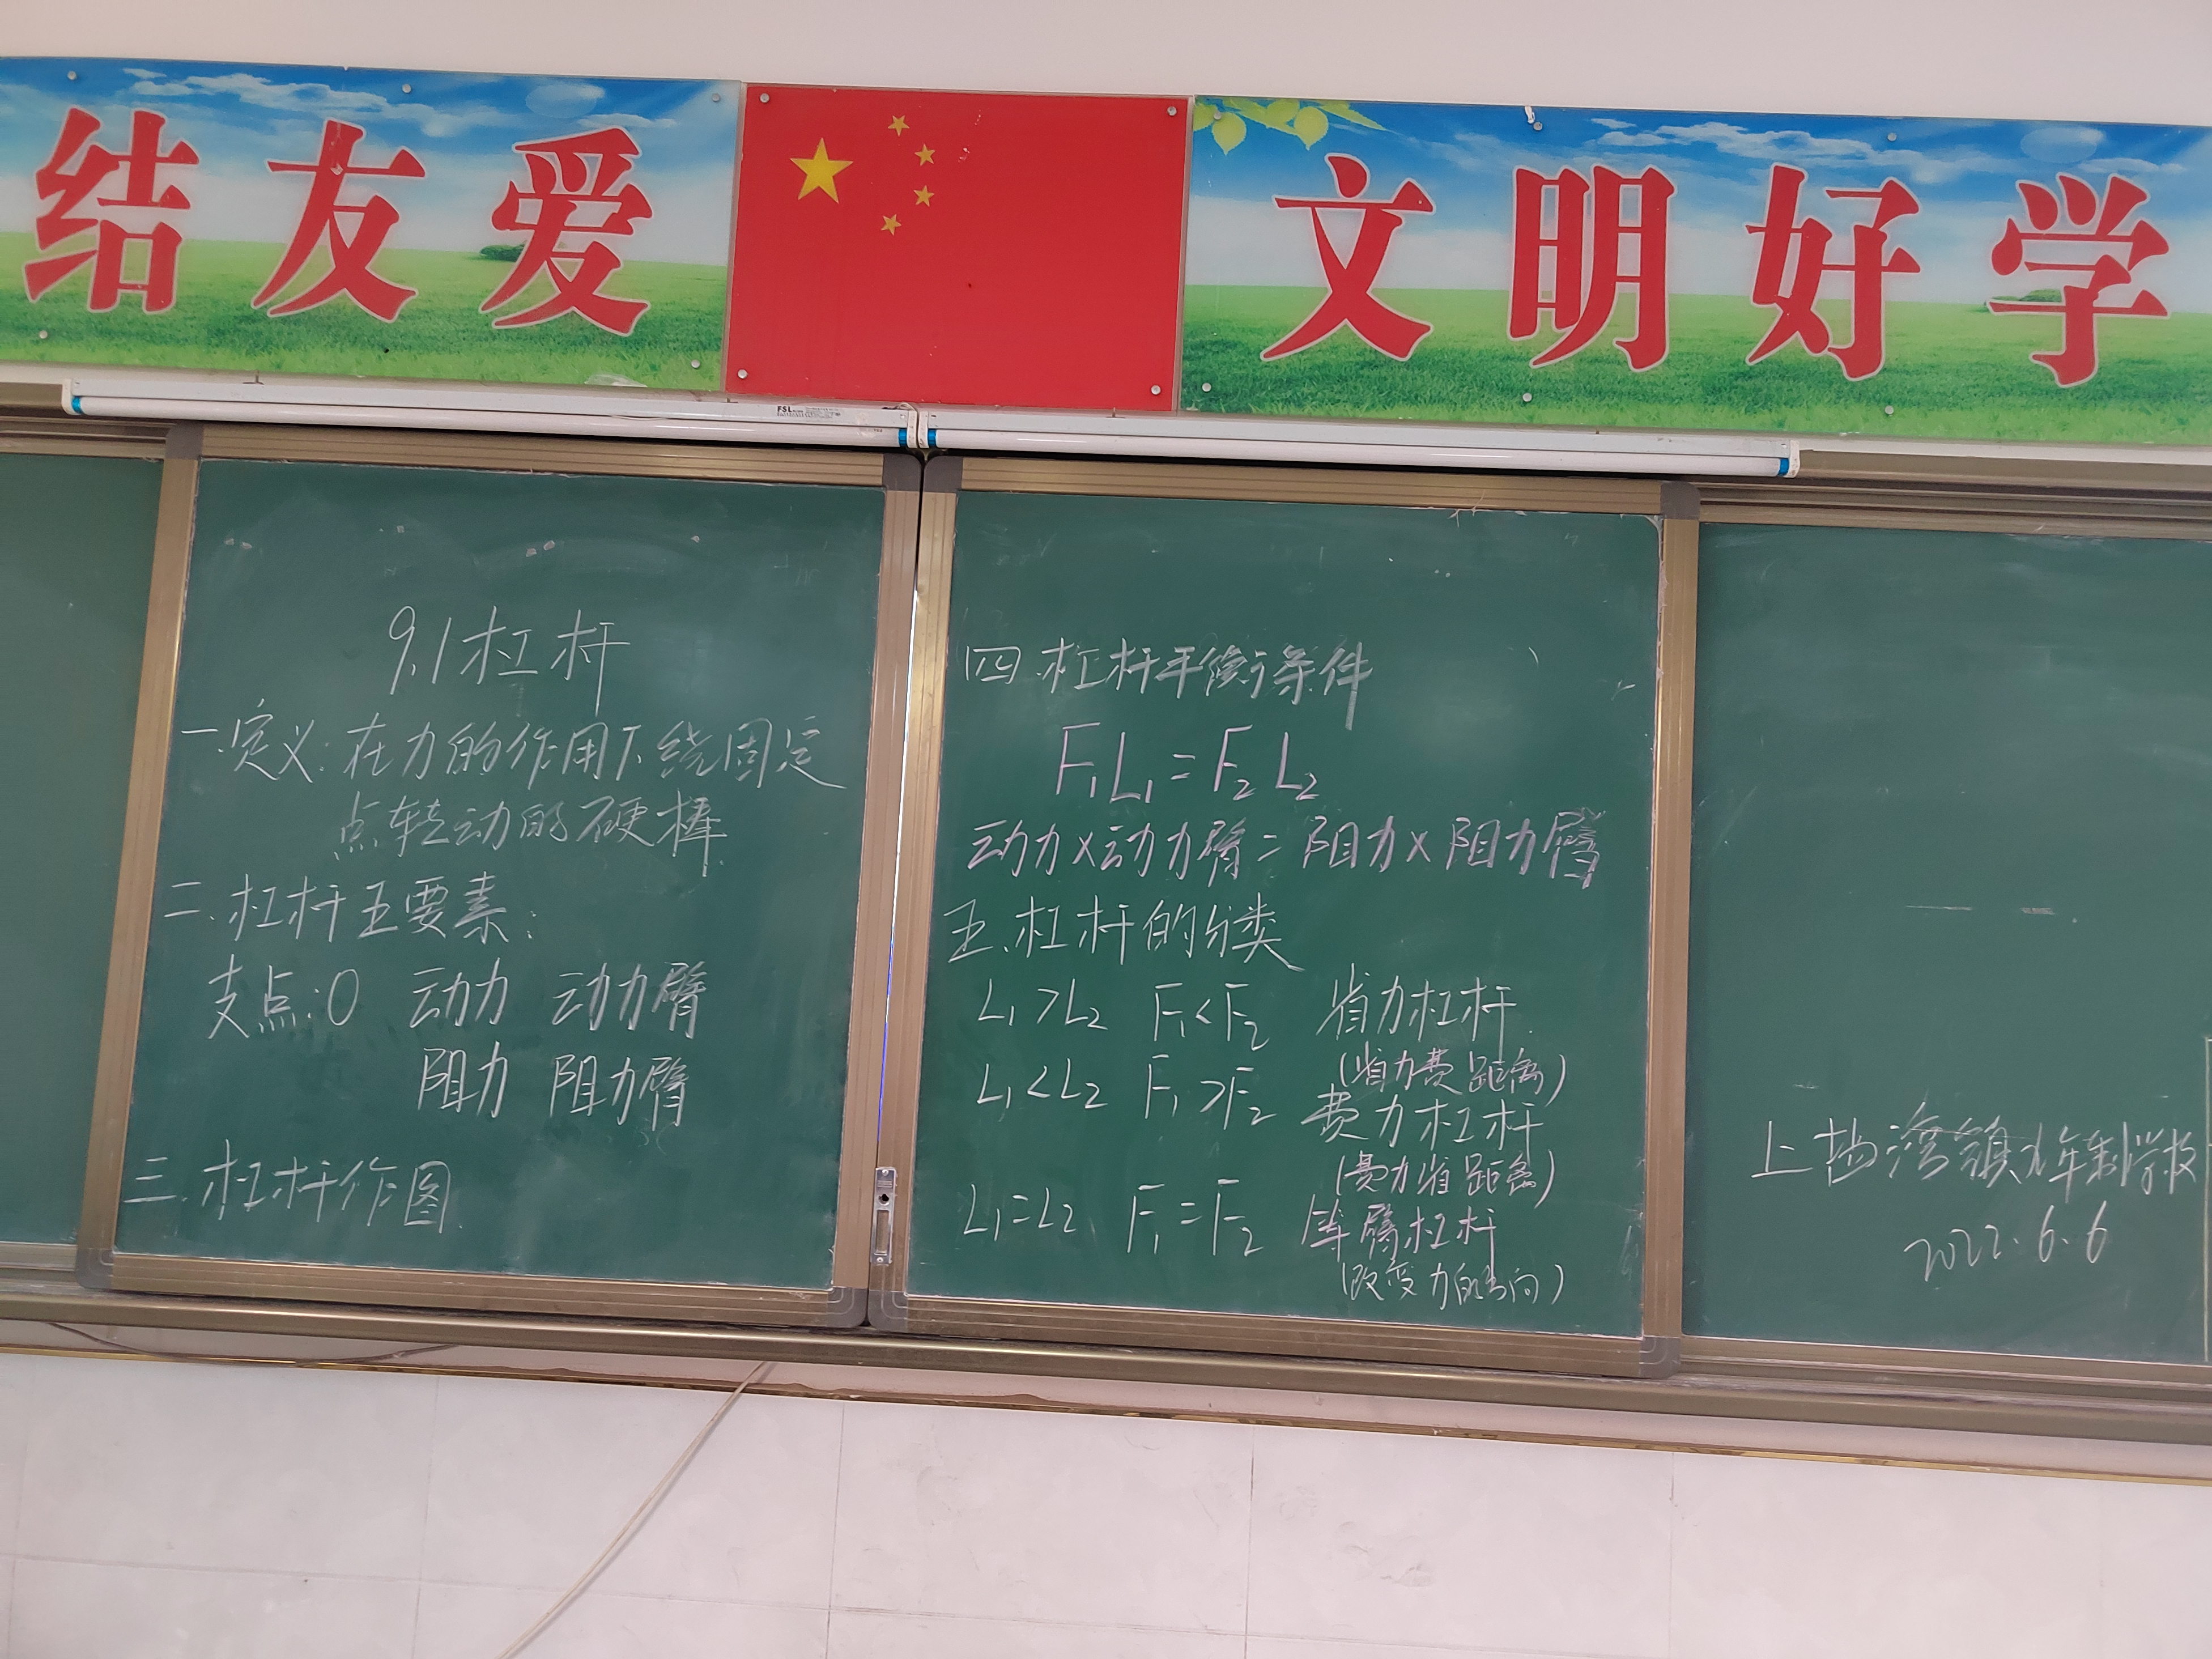 结友爱
文明好学
FSL
9.1杠杆
一.定义:在力的作用下绕固定
点转动的硬棒
二.杠杆五要素:
支点:O 动力 动力臂
阻力 阻力臂
三.杠杆作图
四.杠杆平衡条件
F₁L₁=F₂L₂
动力×动力臂=阻力×阻力臂
五.杠杆的分类
L₁>L₂ F₁<F₂ 省力杠杆
(省力费距离)
L₁<L₂ F₁>F₂ 费力杠杆
(费力省距离)
L₁=L₂ F₁=F₂ 等臂杠杆
(改变力的方向)
上 湾镇九年制学校
2022.6.6